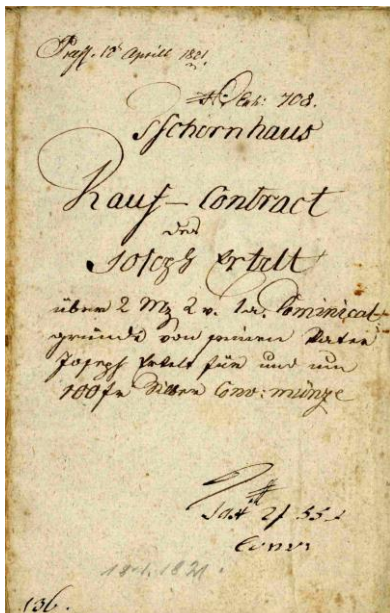 Praes. 10t Aprill 1821.
No: Cat: 708.
Tschernhaus
Kauf-Contract
des
Joseph Ertelt
über 2 Mz 2 v. 1a. Dominical-
gründe von seinem Vater
Joseph Ertelt für und um
100 fr Conv: münze
Tax 2f 55x
Conv:
10.4.1821.
136.